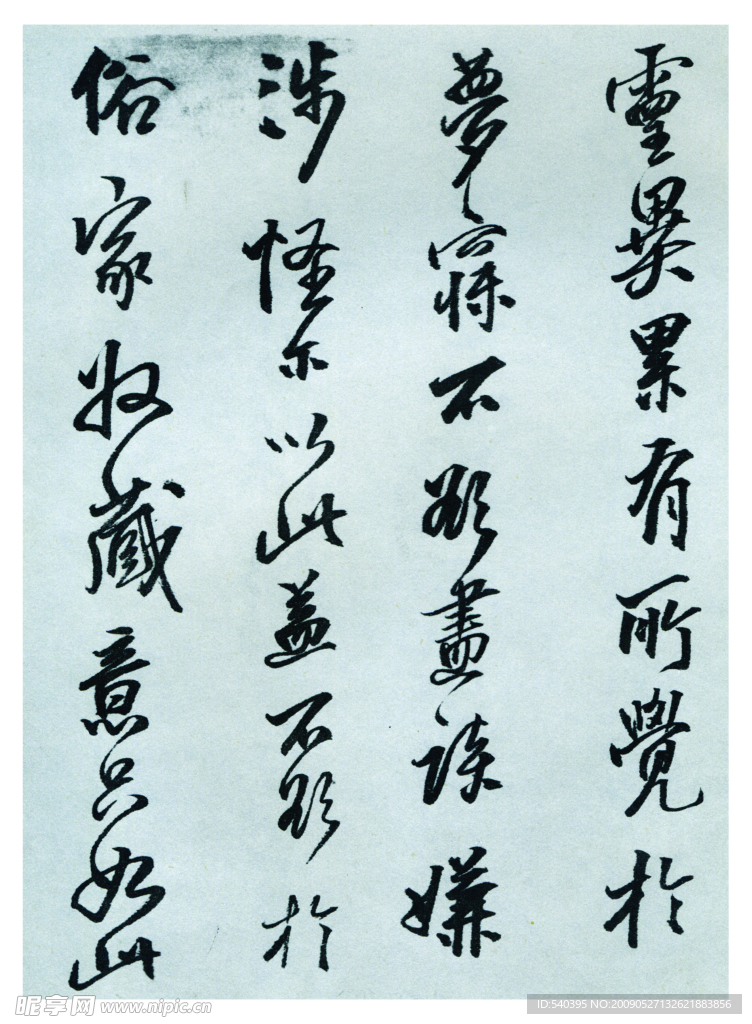 靈異累有所覺於
夢寐不欲盡談嫌
涉怪尔以此益不欲於
俗家收藏意只如此
昵享网 www.nipic.cn
ID:540395 NO:20090527132621883856